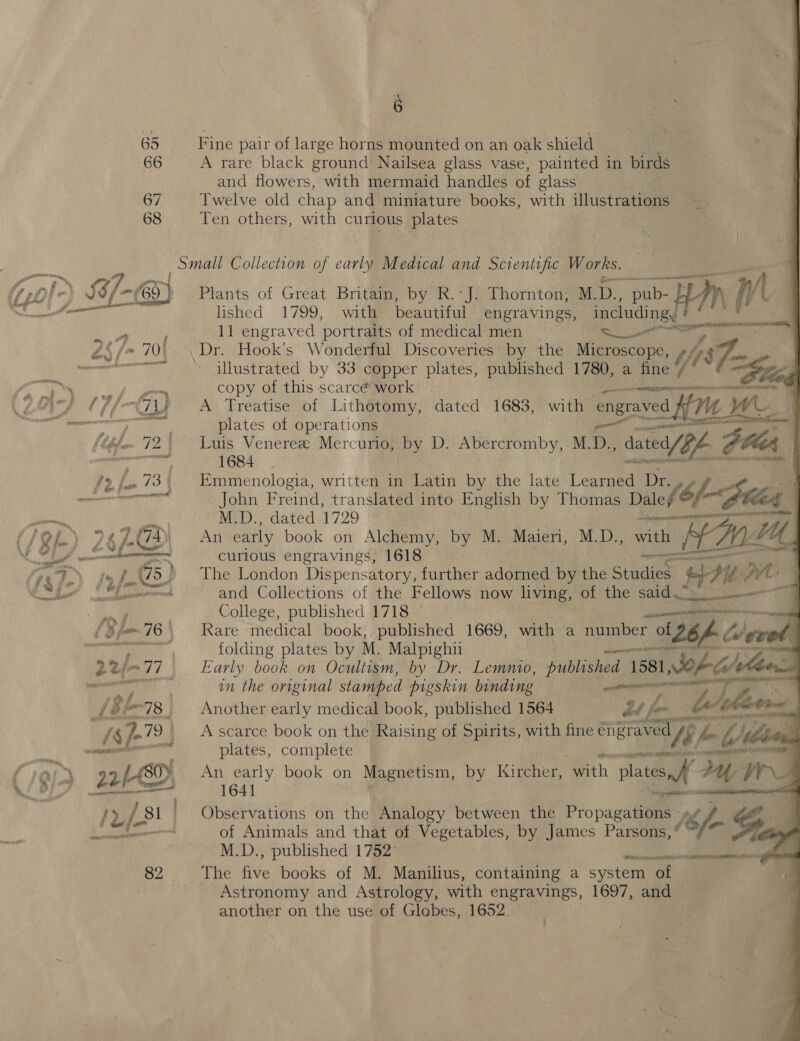 6
65 Fine pair of large horns mounted on an oak shield
66 A rare black ground Nailsea glass vase, painted in birds
and flowers, with mermaid handles of glass
67 Twelve old chap and miniature books, with illustrations
68 Ten others, with curious plates
Small Collection of early Medical and Scientific Works.
69 Plants of Great Britain, by R. J. Thornton, M.D., pub-
lished 1799, with beautiful engravings, including
11 engraved portraits of medical men
70 Dr. Hook's Wonderful Discoveries by the Microscope,
illustrated by 33 copper plates, published 1780, a fine
copy of this scarce work
71 A Treatise of Lithotomy, dated 1683, with engraved
plates of operations
72 Luis Venereæ Mercurio, by D. Abercromby, M.D., dated
1684
73 Emmenologia, written in Latin by the late Learned Dr.
John Freind, translated into English by Thomas Dale,
M.D., dated 1729
74 An early book on Alchemy, by M. Maieri, M.D., with
curious engravings, 1618
75 The London Dispensatory, further adorned by the Studies
and Collections of the Fellows now living, of the said
College, published 1718
76 Rare medical book, published 1669, with a number of
folding plates by M. Malpighii
77 Early book on Ocultism, by Dr. Lemnio, published 1581,
in the original stamped pigskin binding
78 Another early medical book, published 1564
79 A scarce book on the Raising of Spirits, with fine engraved
plates, complete
80 An early book on Magnetism, by Kircher, with plates,
1641
81 Observations on the Analogy between the Propagations
of Animals and that of Vegetables, by James Parsons,
M.D., published 1752
82 The five books of M. Manilius, containing a system of
Astronomy and Astrology, with engravings, 1697, and
another on the use of Globes, 1652.